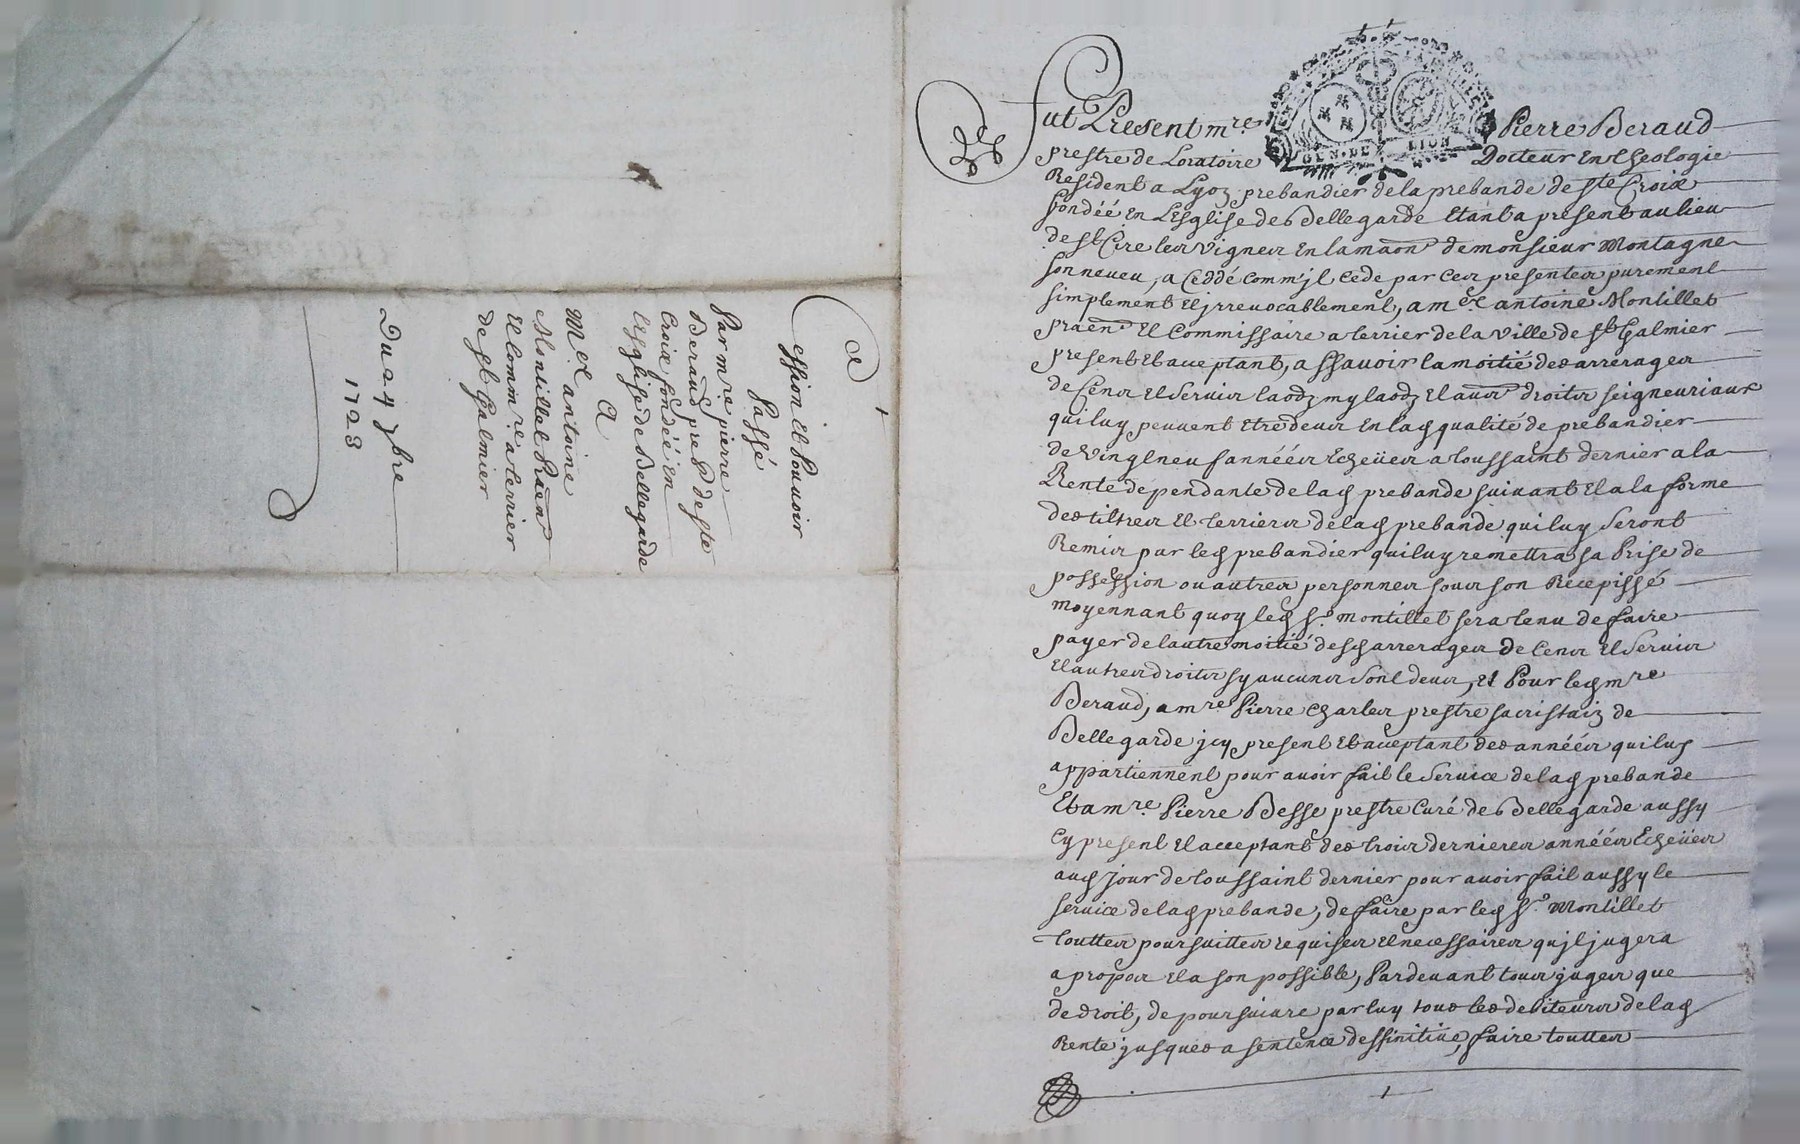 Cession et Pouvoir
Passé
Par mre pierre
Beraud pred de ste
Croix fondée en
L'Esglise de Bellegarde
A
Me antoine
Montillet Praen
Et Commre a terrier
de st Galmier
Du 24 7bre
1723
fut Present mre Pierre Beraud
prestre de Loratoire Docteur en theologie
Resident a Lyon prebandier de la prebande de ste Croix
fondéé En L'Esglise de Bellegarde Etant a present au lieu
de st Cire les Vignes En la maon de monsieur Montagne
son neveu, a Ceddé comm'jl Cede par Ces presentes purement
simplement Et jrrevocablement, a me antoine Montillet
praen Et Commissaire a terrier de la Ville de st Galmier
present Et aceptant, a ssavoir la moitié des arrerages
de Cens Et Servis laodz mylaodz Et aues droits seigneuriaux
qui luy peuvent Etre deus En lad qualité de prebandier
de Vingt neuf annéés Echeües a toussaint dernier a la
Rente dépendante de lad prebande suivant Et a la forme
des tiltres Et terriers de lad prebande qui luy Seront
Remis par led prebandier qui luy remettra sa Prise de
possession ou autres personnes sous son Récépissé
moyennant quoy led Sr montillet sera tenu de faire
payer de lautre moitié desd arrerages de Cens Et Servis
Et autres droits sy aucuns sont deus, Et Pour led mre
Beraud, a mre Pierre Charles prestre sacristain de
Bellegarde jcy present Et acceptant des annéés qui luy
appartiennent pour avoir fait le Service de lad prebande
Et a mre Pierre Besse prestre Curé de Bellegarde aussy
Cy present Et acceptant des trois dernieres annéés Echeües
aud Jour de toussaint dernier pour avoir fait aussy le
service de lad prebande, de faire par led Sr Montillet
touttes poursuittes requises Et necessaires qu'jl jugera
a propos Et a son possible, Pardevant tous juges que
de droit, de poursuivre par luy tous les debiteurs de lad
Rente jusques a sentence deffinitive, faire touttes